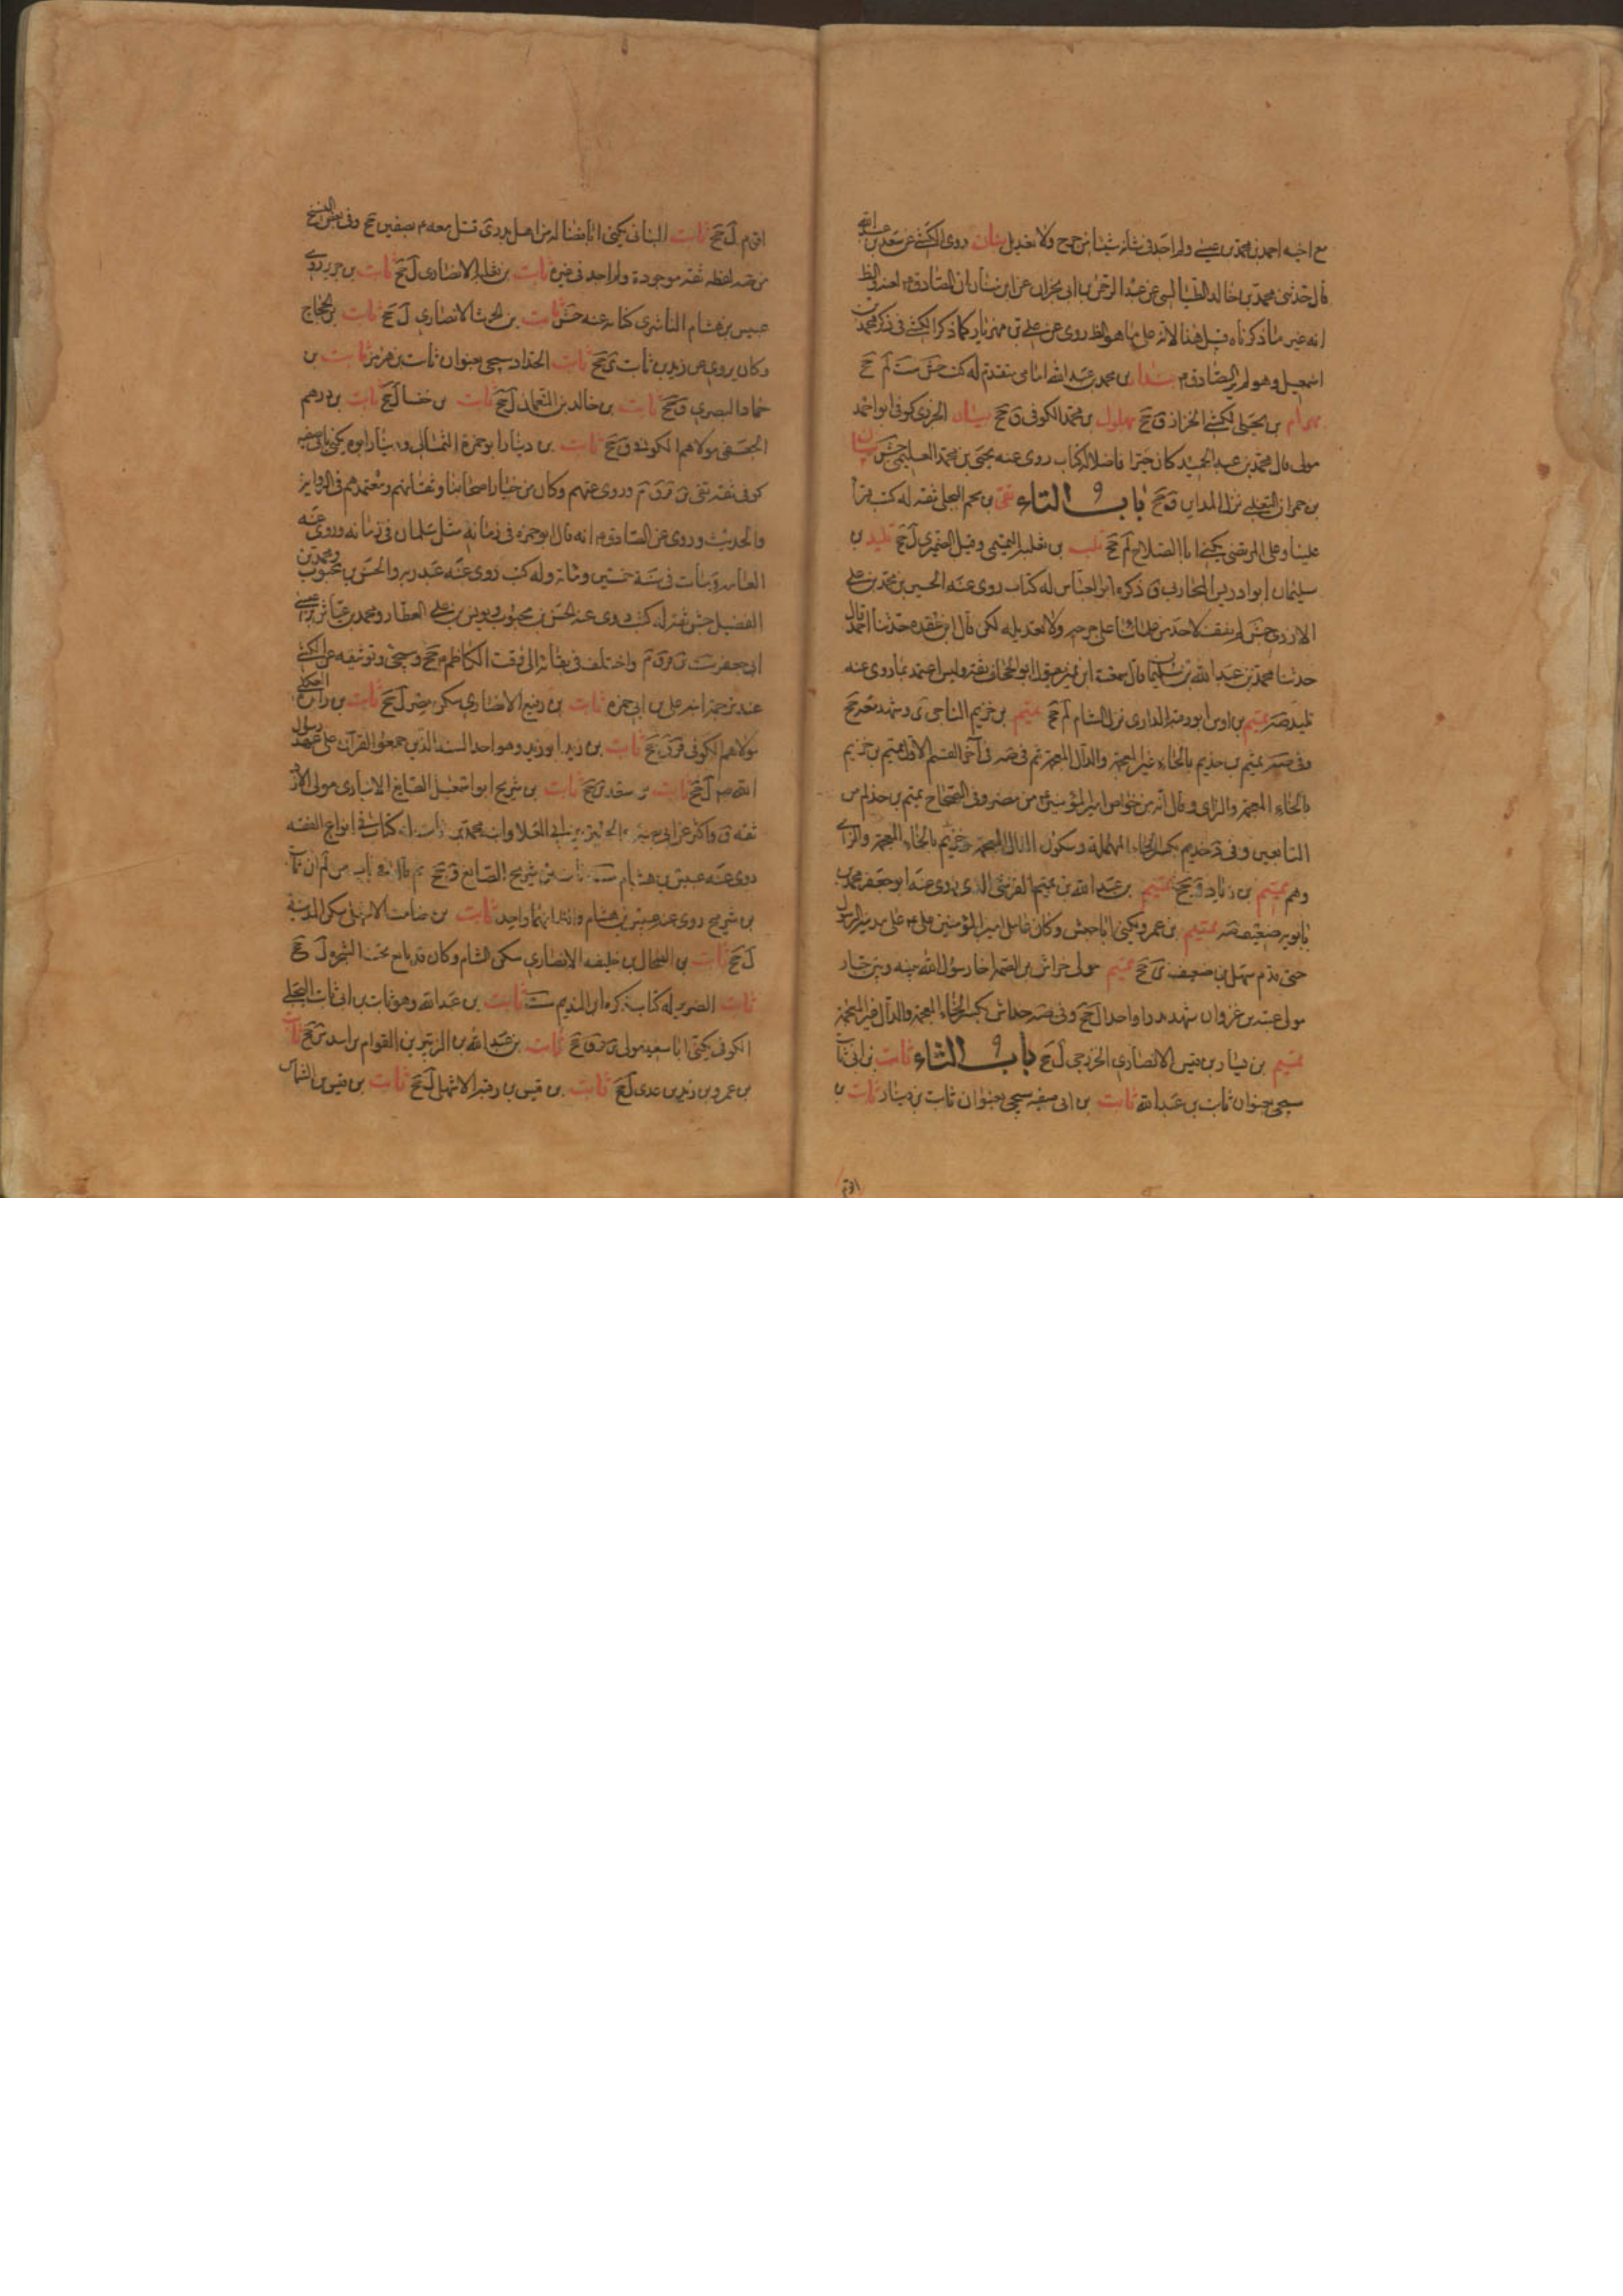 مع اخيه احمد بن محمد بن عيسى ولم اجد في شانه شيئا من جرح ولا تعديل بنان روى الكشي عن سعد بن عبد الله
قال حدثنى محمد بن خالد الطيالسي عن عبد الرحمن بن ابى نجران عن ابن سنان ان الصادق لعنه والظ
انه غير ما ذكرناه قبل هذا لانه على ما هو الظ روى عن علي بن مهزيار كما ذكر الكشي في ذكر محمد بن
اسمعيل وهو لم ير الصادق م بندار بن محمد بن عبد الله امامى متقدم له كتب جش ست لم جح
بهرام بن يحيى الكشي الخزاز ق جح بهلول بن محمد الكوفى ق جح بيان الجزرى كوفى ابو احمد
مولى قال محمد بن عبد الحميد كان خيرا فاضلا له كتاب روى عنه يحيى بن محمد العليمى جش بيان
بن حمران التغلبى نزل المداين ق جح باب التاء تقى بن نجم الحلبى ثقة له كتب قرأ
علينا وعلى المرتضى يكنى ابا الصلاح لم جح تلب بن ثعلبة التميمى وقيل العنبرى ل جح تليد بن
سليمان ابو ادريس المحاربى ق ذكره ابو العباس له كتاب روى عنه الحسين بن محمد بن علي
الازدى جش لم نقف لاحد من علمائنا على جرحه ولا تعديله لكن قال ابن عقدة حدثنا احمد قال
حدثنا محمد بن عبد الله بن سليمان قال سمعت ابن نمير يقول ابو الجحاف ثقة وليس اعتمد بما روى عنه
تليد صه تميم بن اوس ابو رقية الدارى نزل الشام ل جح تميم بن خزيم الناجى ى وشهد معه جح
وفى صه تميم بن حذيم بالحاء غير المعجمة والذال المعجمة ثم في صه فى آخر القسم الاول تميم بن خزيم
بالخاء المعجمة والزاى وقال انه من خواص امير المؤمنين من مضر وفى الصحاح تميم بن حذلم من
التابعين وفى د حذيم بكسر الحاء المهملة وسكون الذال المعجمة وخزيم بالخاء المعجمة والزاى
وهم تميم بن زياد ق جح تميم بن عبد الله بن تميم القرشى الذى روى عنه ابو جعفر محمد بن
بابويه ضعيف صه تميم بن عمرو يكنى ابا حبش وكان عامل امير المؤمنين على ع على مدينة الرسول
حتى قدم سهل بن حنيف ى جح تميم مولى خراش بن الصمة اخا رسول الله بينه وبين خباب
مولى عتبة بن غزوان شهد بدرا واحدا ل جح وفى صه خداش بكسر الخاء المعجمة والدال غير المعجمة
تميم بن يسار بن قيس الانصارى الخزرجى ل جح باب الثاء ثابت بن ابى ثابت
سيجى بعنوان ثابت بن عبد الله ثابت بن ابى صفيه سيجى بعنوان ثابت بن دينار ثابت بن
اقرم
اقرم ل جح ثابت البنانى يكنى ابا فضالة من اهل بدر ى قتل معه م بصفين جح وفى بعض النسخ
من صه لفظه ثقة موجودة ولم اجد في غيره ثابت بن ثعلبة الانصارى ل جح ثابت بن جرير روى
عبيس بن هشام الناشرى كتابه عنه جش ثابت بن الحرث الانصارى ل جح ثابت بن الحجاج
وكان يروى عن زيد بن ثابت ى جح ثابت الحداد سيجى بعنوان ثابت بن هرمز ثابت بن
حماد البصرى ق جح ثابت بن خالد بن النعمان ل جح ثابت بن خنسا ل جح ثابت بن درهم
الجعفى مولاهم الكوفى ق جح ثابت بن دينار ابو حمزة الثمالى ودينار ابوه يكنى بابى صفيه
كوفى ثقة لقى ين قر ق م وروى عنهم وكان من خيار اصحابنا وثقاتهم ومعتمدهم فى الرواية
والحديث وروى عن الصادق م انه قال ابو حمزة فى زمانه مثل سلمان فى زمانه وروى عنه
العامة ومات فى سنة خمسين ومائة وله كتب روى عنه عبد ربه والحسن بن محبوب ومحمد بن
الفضيل جش ثقة له كتب روى عنه الحسن بن محبوب ويونس بن علي العطار ومحمد بن عياش بن عيسى
ابى جعفر ست ين قر ق م واختلف فى بقائه الى وقت الكاظم م جح وسيجى توثيقه عن الكشي
عند ترجمة ابنه على بن ابى حمزة ثابت بن رفيع الانصارى سكن مصر ل جح ثابت بن زائدة العكلى
مولاهم الكوفى ق ر جح ثابت بن زيد ابو زيد وهو احد الستة الذين جمعوا القرآن على عهد رسول
الله ص ل جح ثابت بن سعد ى جح ثابت بن شريح ابو اسمعيل الصايغ الانبارى مولى الازد
ثقة ق واكثر عن ابى بصير والحسين بن ابى العلا وابنه محمد بن ثابت له كتاب فى انواع الفقه
روى عنه عبيس بن هشام ست ثابت بن شريح الصايغ ق جح ثم قال فى باب من لم ان ثابت
بن شريح روى عنه عبيس بن هشام والظ انهما واحد ثابت بن صامت الاشهلى سكن المدينة
ل جح ثابت بن الضحاك بن خليفه الانصارى سكن الشام وكان قد بايع تحت الشجرة ل جح
ثابت الضرير له كتاب ذكره ابن النديم ست ثابت بن عبد الله وهو ثابت بن ابى ثابت البجلى
الكوفى يكنى ابا سعيد مولى ين قر ق جح ثابت بن عبد الله بن الزبير بن العوام بن اسد ين جح ثابت
بن عمرو بن زيد بن عدى ل جح ثابت بن قيس بن زغبة الاشهل ل جح ثابت بن قيس بن الشماس